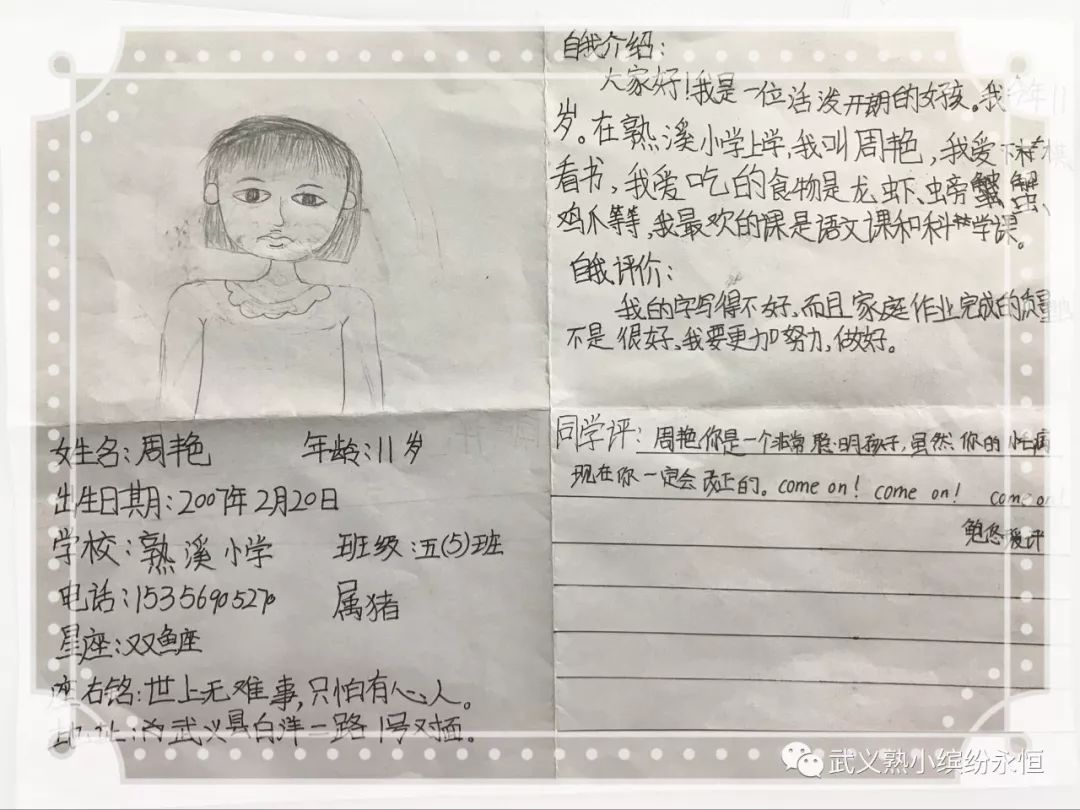 自我介绍：
大家好！我是一位活泼开朗的女孩。我今年11
岁。在熟溪小学上学，我叫周艳，我爱下棋
看书，我爱吃的食物是龙虾、螃蟹、
鸡爪等等，我最欢的课是语文课和科学课。
自我评价：
我的字写得不好，而且家庭作业完成的质量
不是很好，我要更加努力，做好。
女生名：周艳 年龄：11岁
出生日期：2007年2月20日
学校：熟溪小学 班级：五(5)班
电话：15356905270 属猪
星座：双鱼座
座右铭：世上无难事，只怕有心人。
地址：武义县白洋二路1号对面。
同学评：周艳你是一个非常聪明孩子，虽然你的小毛病
现在你一定会改正的。come on! come on! come on!
鲍悠 评
武义熟小缤纷永恒